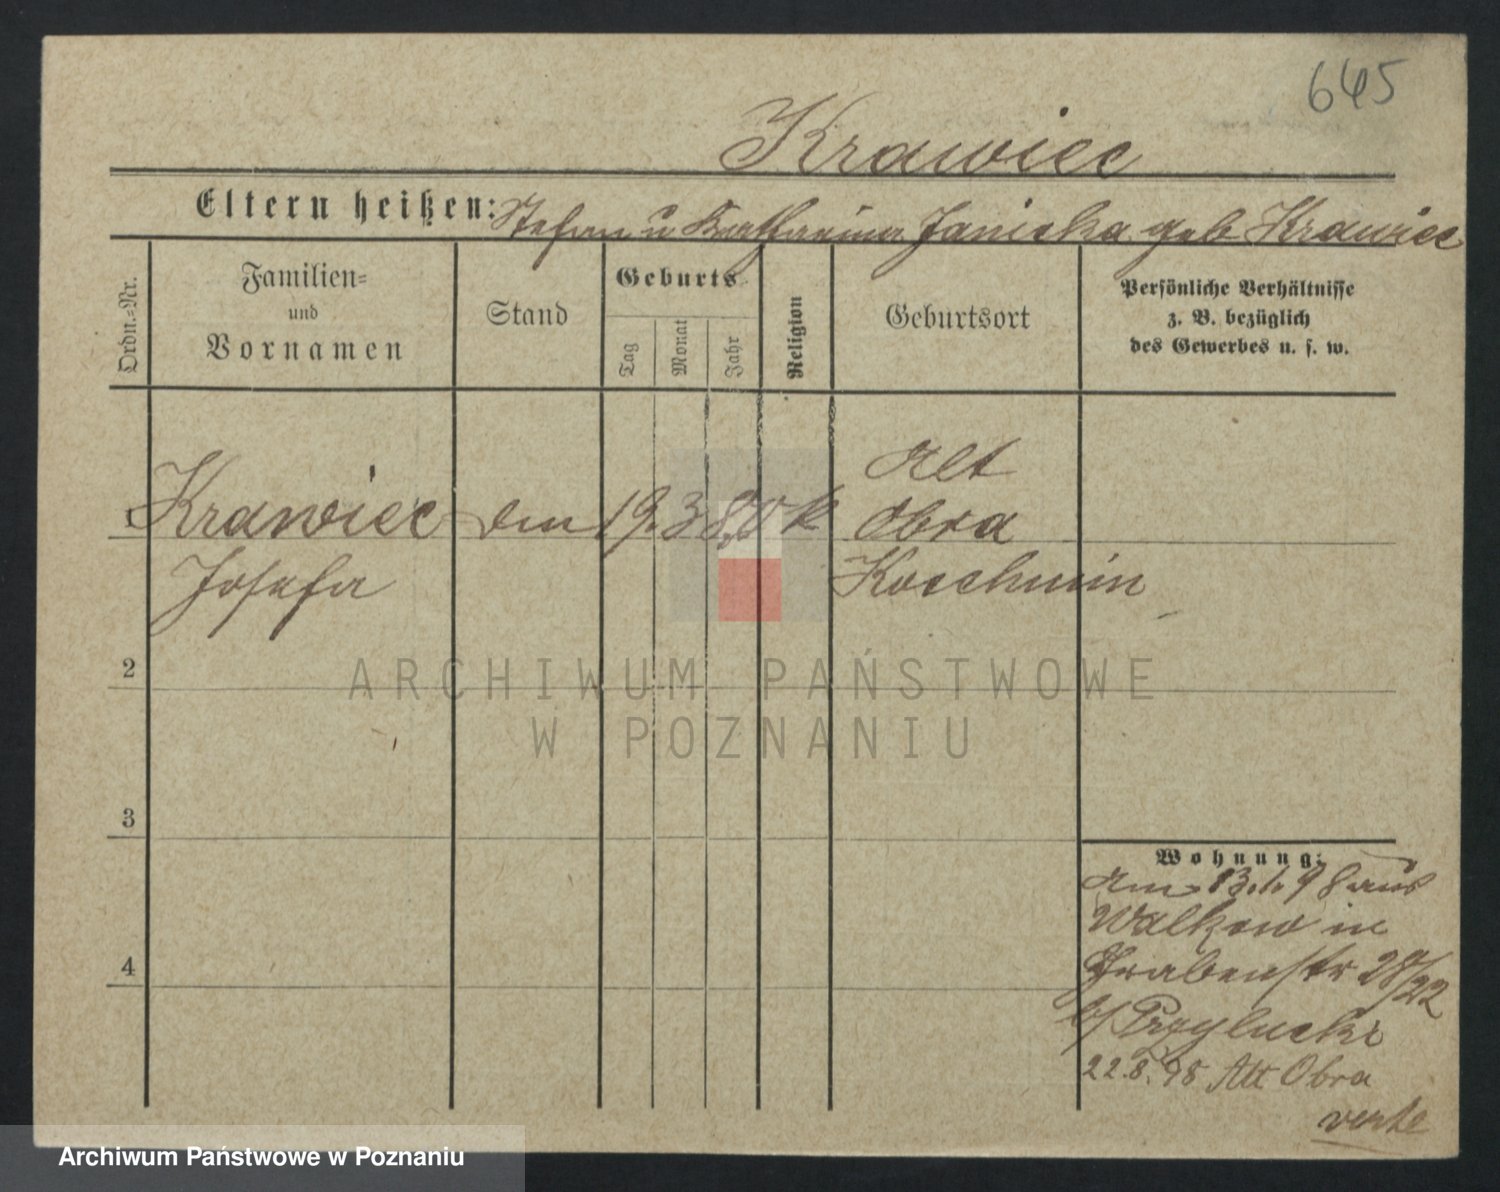 645
Krawiec
Eltern heißen: Stefan u Katharina Janicka geb Krawiec
Ordn.-Nr.
Familien- und Vornamen
Stand
Geburts
Tag
Monat
Jahr
Religion
Geburtsort
Persönliche Verhältnisse
z. B. bezüglich
des Gewerbes u. s. w.
Alt
1 Krawiec den 19. 3 80 k Obra
Josefa Koschmin
2
ARCHIWUM PAŃSTWOWE
W POZNANIU
3
4
Wohnung:
Am 13.1.98 aus
Walkow in
Grabenstr 28/22
b/ Przylucki
22.8.98 Alt Obra
verte
Archiwum Państwowe w Poznaniu